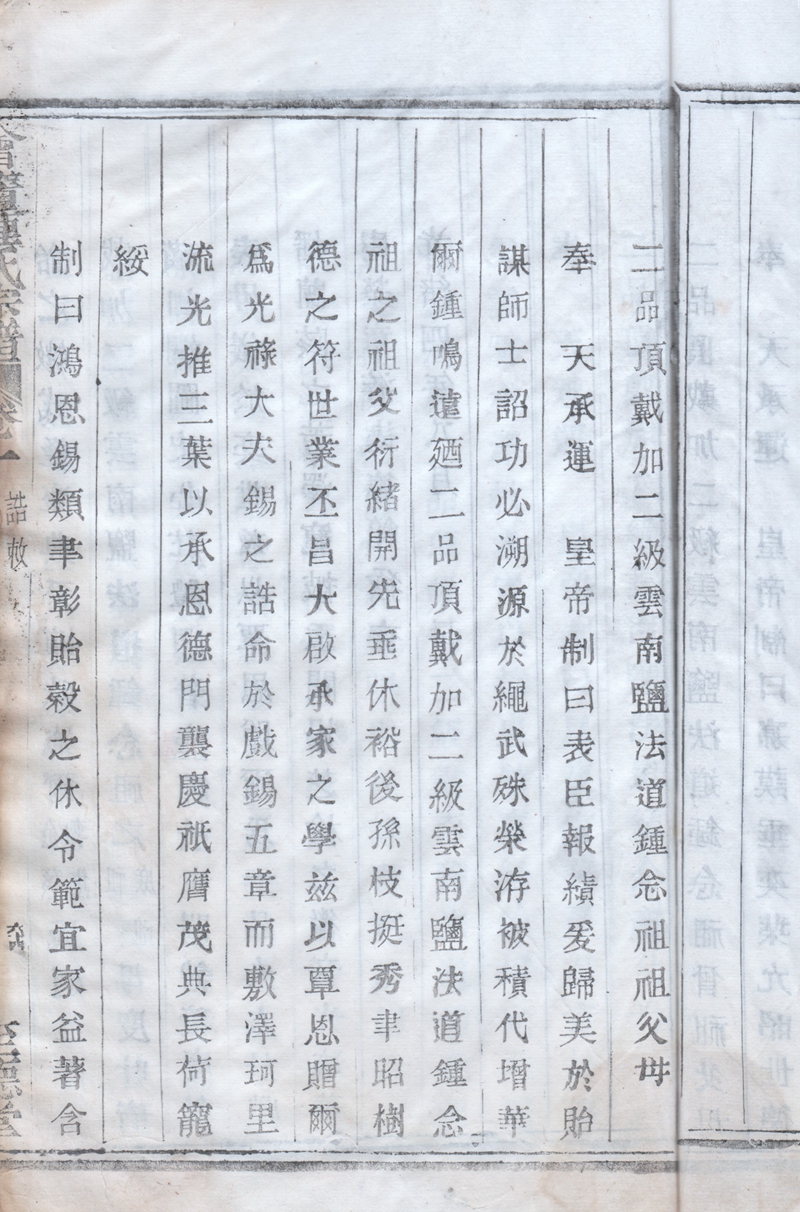 二品頂戴加二級雲南鹽法道鍾念祖祖父母
奉　天承運　皇帝制曰表臣報績爰歸美於貽
謀師士詔功必溯源於繩武殊榮洊被積代增華
爾鍾鳴遠廼二品頂戴加二級雲南鹽法道鍾念
祖之祖父衍緒開先垂休裕後孫枝挺秀聿昭樹
德之符世業丕昌大啟承家之學兹以覃恩贈爾
爲光祿大夫錫之誥命於戲錫五章而敷澤珂里
流光推三葉以承恩德門襲慶祇膺茂典長荷寵
綏
制曰鴻恩錫類聿彰貽榖之休令範宜家益著含
氏宗譜
誥敕